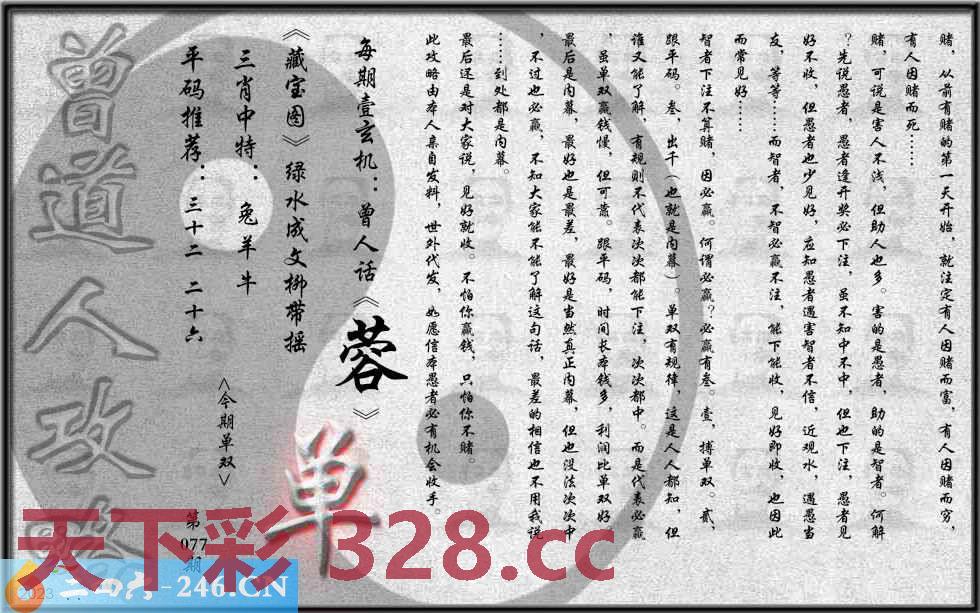 赌，从前有赌的第一天开始，就注定有人因赌而富，有人因赌而穷，
有人因赌而死……
赌，可说是害人不浅，但助人也多。害的是愚者，助的是智者。何解
？先说愚者，愚者逢开奖必下注，虽不知中不中，但也下注，愚者见
好不收，但愚者也少见好，应知愚者遇害智者不信，近观水，遇愚当
友，等等……而智者，不智必赢不注，能下能收，见好即收，也因此
而常见好……
智者下注不算赌，因必赢。何谓必赢？必赢有叁。壹，搏单双。贰，
跟平码。叁，出千（也就是内幕）。单双有规律，这是人人都知，但
谁又能了解，有规则不代表次次都能下注，次次都中。而是代表必赢
，虽单双赢钱慢，但可靠。跟平码，时间长本钱多，利润比单双好。
最后是内幕，最好也是最差，最好是当然真正内幕，但也没法次次中
，不过也必赢，不知大家能不能了解这句话，最差的相信也不用我说
……到处都是内幕。
最后还是对大家说，见好就收。不怕你赢钱，只怕你不赌。
此攻略由本人亲自发料，世外代发，如愿信本愚者必有机会收手。
每期壹玄机：曾人话《蓉》
《藏宝图》绿水成文柳带摇
三肖中特：兔羊牛
平码推荐：三十二 二十六
<今期单双>
单
第077期
曾道人攻略
天下彩328.cc
二四六-246.CN
2023